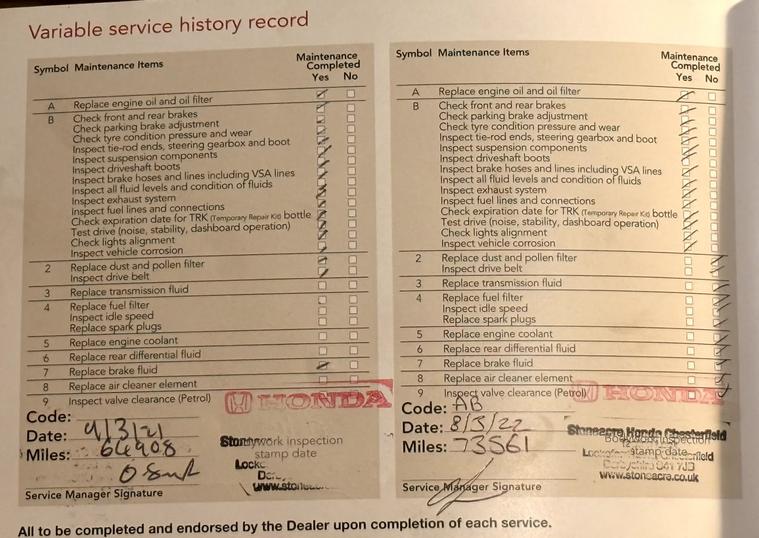 Variable service history record
Symbol Maintenance Items Maintenance Completed Yes No
A Replace engine oil and oil filter
B Check front and rear brakes
Check parking brake adjustment
Check tyre condition pressure and wear
Inspect tie-rod ends, steering gearbox and boot
Inspect suspension components
Inspect driveshaft boots
Inspect brake hoses and lines including VSA lines
Inspect all fluid levels and condition of fluids
Inspect exhaust system
Inspect fuel lines and connections
Check expiration date for TRK (Temporary Repair Kit) bottle
Test drive (noise, stability, dashboard operation)
Check lights alignment
Inspect vehicle corrosion
2 Replace dust and pollen filter
Inspect drive belt
3 Replace transmission fluid
4 Replace fuel filter
Inspect idle speed
Replace spark plugs
5 Replace engine coolant
6 Replace rear differential fluid
7 Replace brake fluid
8 Replace air cleaner element
9 Inspect valve clearance (Petrol)
HONDA
Code:
Date: 4/3/21
Miles: 64908
Bodywork inspection
stamp date
Service Manager Signature
Symbol Maintenance Items Maintenance Completed Yes No
A Replace engine oil and oil filter
B Check front and rear brakes
Check parking brake adjustment
Check tyre condition pressure and wear
Inspect tie-rod ends, steering gearbox and boot
Inspect suspension components
Inspect driveshaft boots
Inspect brake hoses and lines including VSA lines
Inspect all fluid levels and condition of fluids
Inspect exhaust system
Inspect fuel lines and connections
Check expiration date for TRK (Temporary Repair Kit) bottle
Test drive (noise, stability, dashboard operation)
Check lights alignment
Inspect vehicle corrosion
2 Replace dust and pollen filter
Inspect drive belt
3 Replace transmission fluid
4 Replace fuel filter
Inspect idle speed
Replace spark plugs
5 Replace engine coolant
6 Replace rear differential fluid
7 Replace brake fluid
8 Replace air cleaner element
9 Inspect valve clearance (Petrol)
HONDA
Code: AB
Date: 8/3/22
Miles: 73561
Stoneacre Honda Chesterfield
Bodywork inspection
stamp date
www.stoneacre.co.uk
Service Manager Signature
All to be completed and endorsed by the Dealer upon completion of each service.